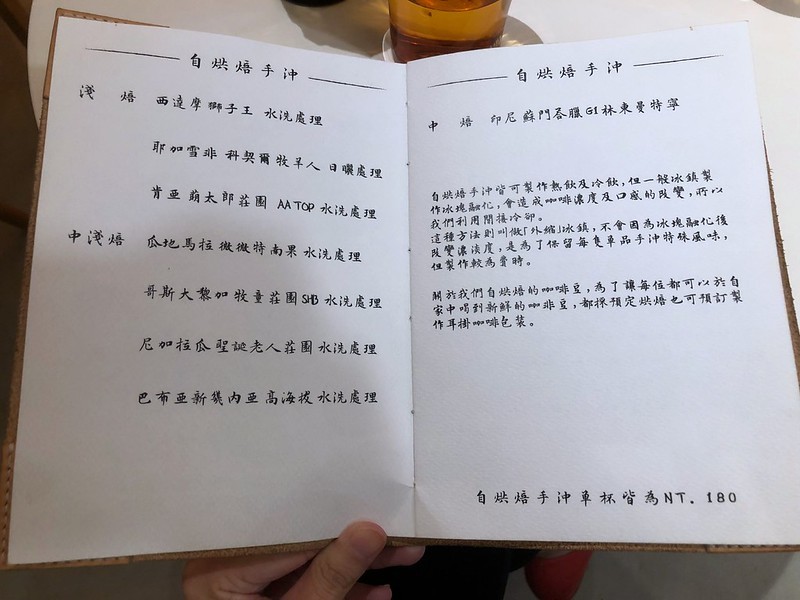 自烘焙手沖
淺 焙 西達摩獅子王 水洗處理
耶加雪菲 科契爾牧羊人 日曬處理
肯亞 萌太郎莊園 AA TOP 水洗處理
中淺焙 瓜地馬拉 微微特南果 水洗處理
哥斯大黎加 牧童莊園SHB 水洗處理
尼加拉瓜 聖誕老人莊園 水洗處理
巴布亞新幾內亞 高海拔 水洗處理
自烘焙手沖
中 焙 印尼 蘇門答臘G1林東曼特寧
自烘焙手沖皆可製作熱飲及冷飲,但一般冰鎮製
作冰塊融化,會造成咖啡濃度及口感的改變,所以
我們利用間接冷卻。
這種方法則叫做「外縮」冰鎮,不會因為冰塊融化後
改變濃淡度,是為了保留每隻單品手沖特殊風味,
但製作較為費時。
關於我們自烘焙的咖啡豆,為了讓每位都可以於自
家中喝到新鮮的咖啡豆,都採預定烘焙也可預訂製
作耳掛咖啡包裝。
自烘焙手沖單杯皆為NT. 180